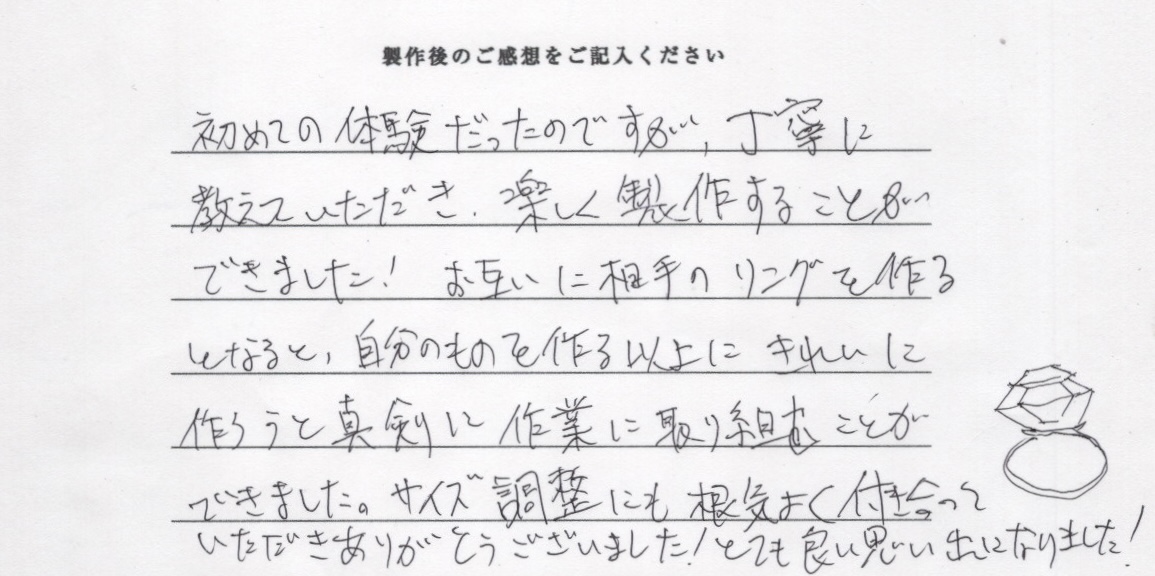 製作後のご感想をご記入ください
初めての体験だったのですが、丁寧に
教えていただき、楽しく製作することが
できました！ お互いに相手のリングを作る
となると、自分のものを作る以上にきれいに
作ろうと真剣に作業に取り組むことが
できました。サイズ調整にも根気よく付き合って
いただきありがとうございました！とても良い思い出になりました！